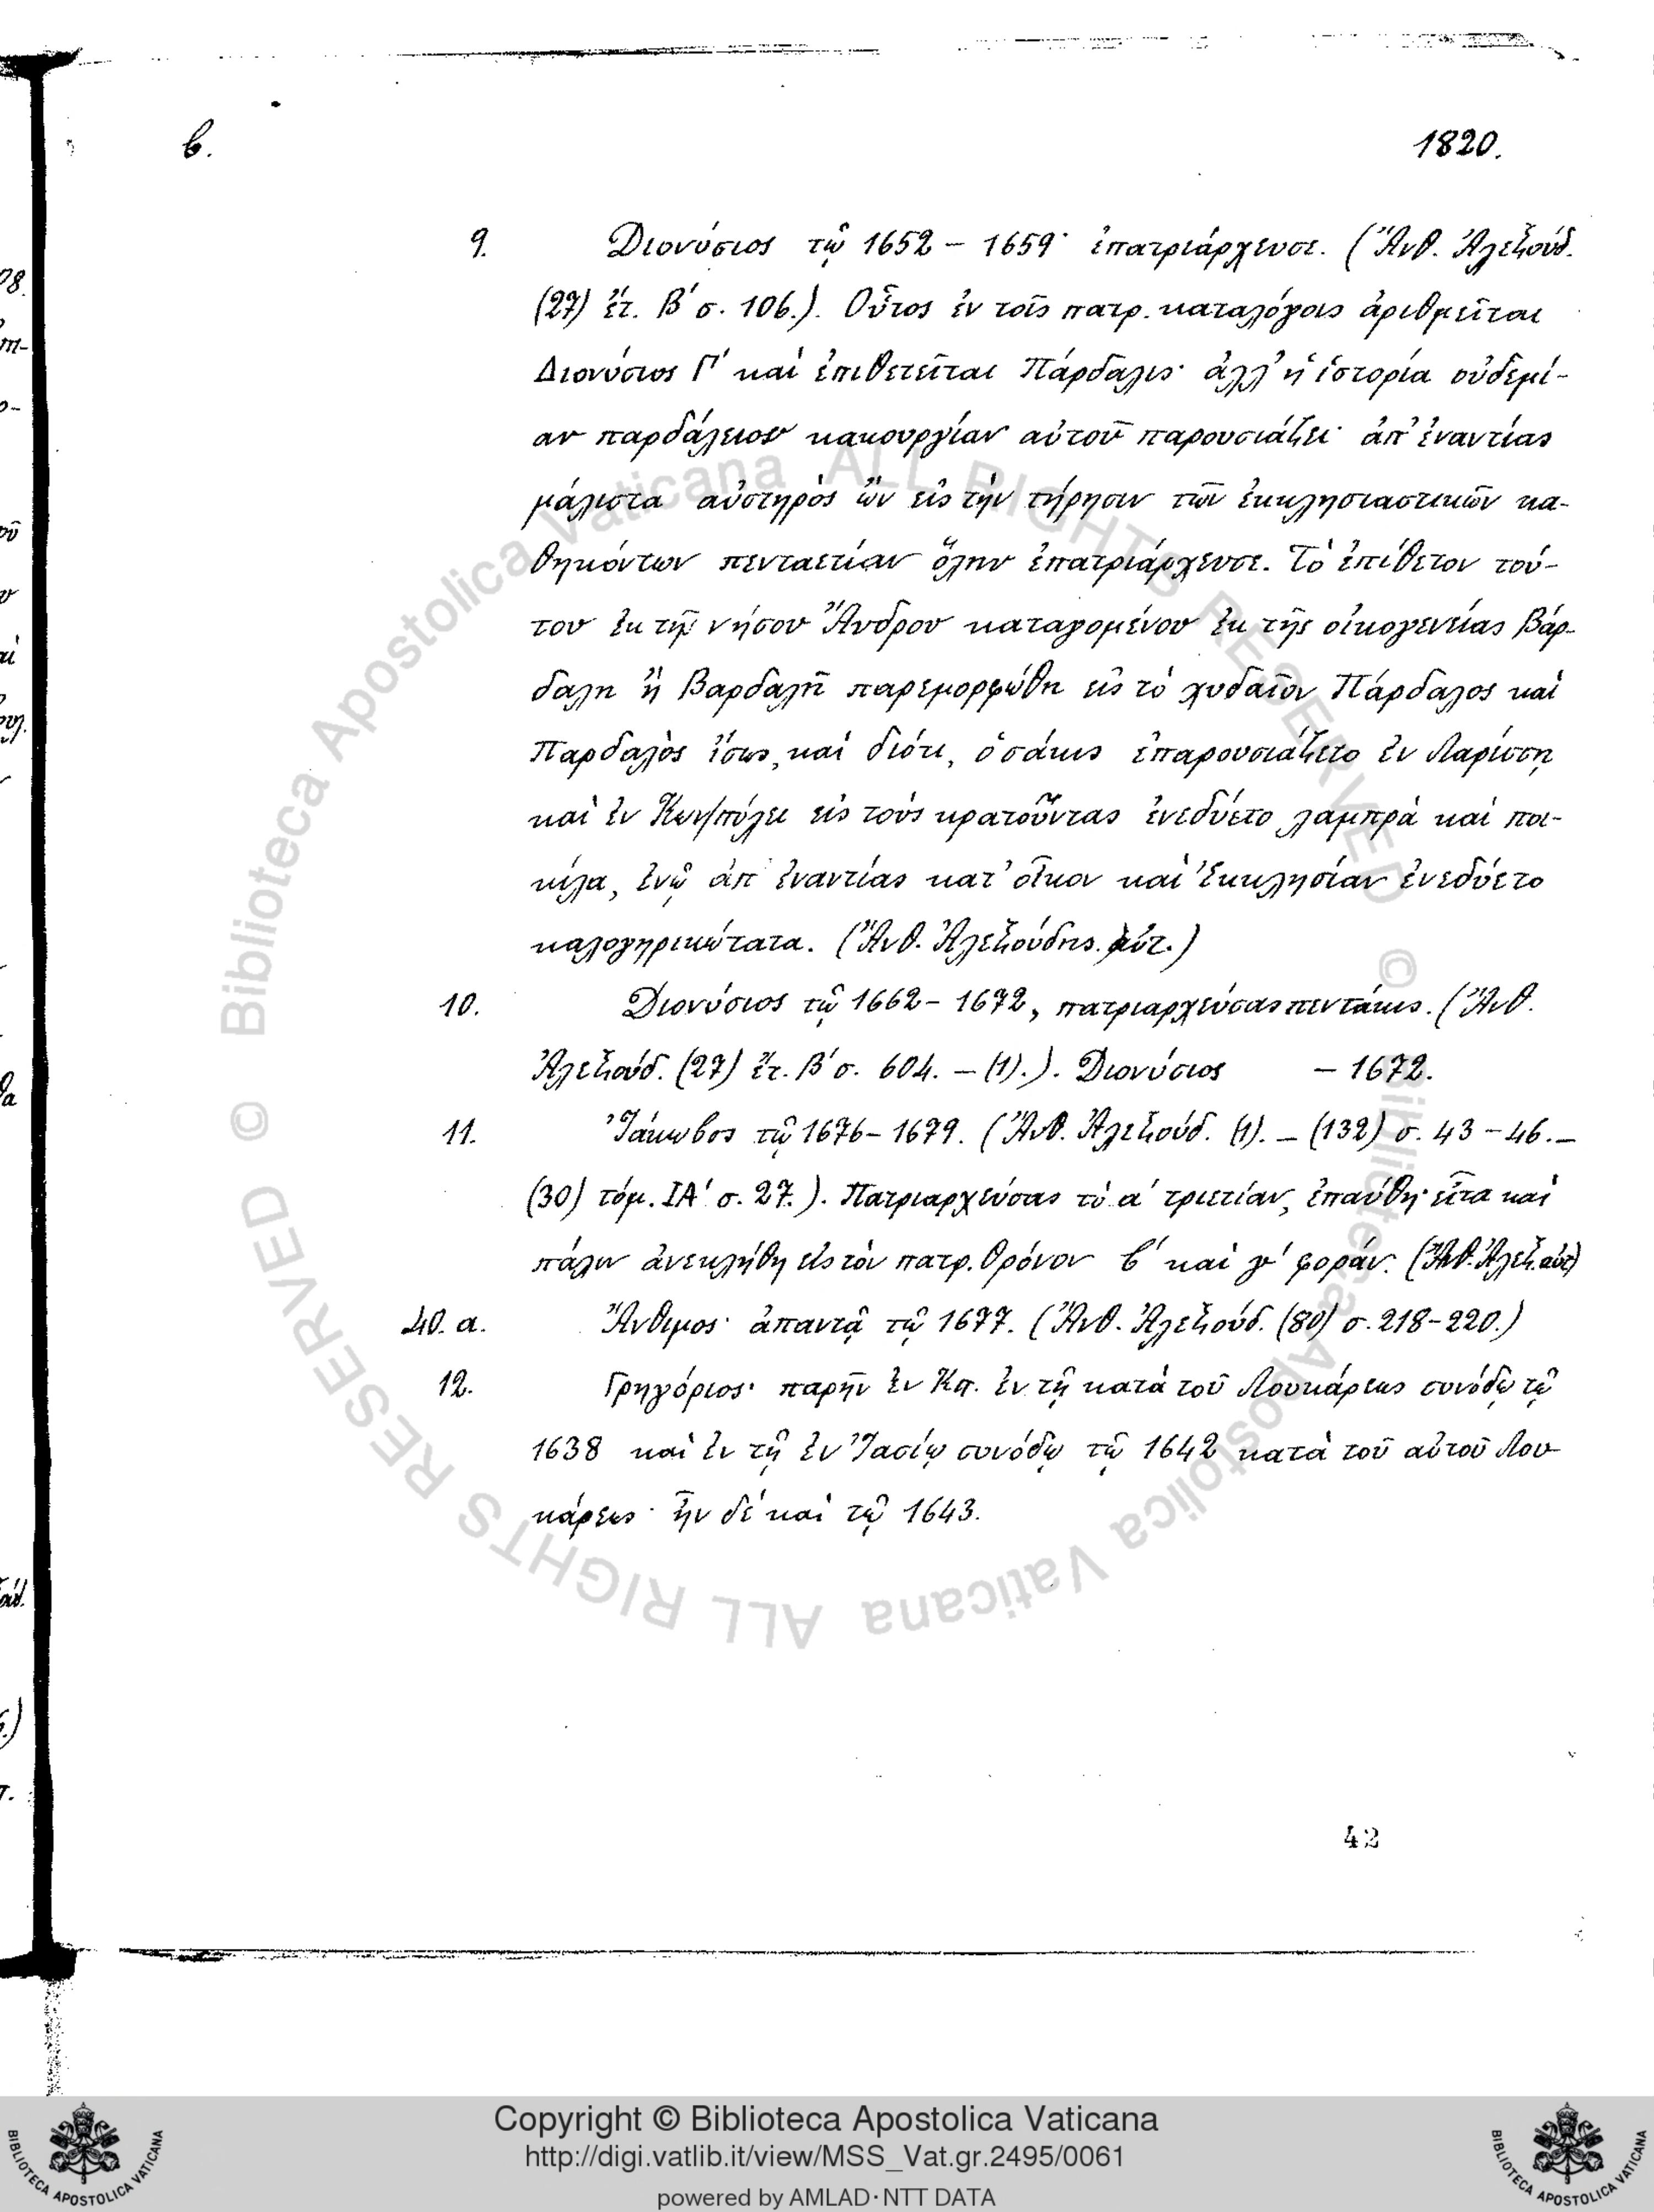 β. 1820.
9. Διονύσιος τῷ 1652 – 1659· ἐπατριάρχευσε. (Ἄνθ. Ἀλεξούδ.
(27) ἔτ. Β′ σ. 106.). Οὗτος ἐν τοῖς πατρ. καταλόγοις ἀριθμεῖται
Διονύσιος Γ′ καὶ ἐπιθετεῖται Πάρδαλις· ἀλλ' ἡ ἱστορία οὐδεμί-
αν παρδάλειον κακουργίαν αὐτοῦ παρουσιάζει· ἀπ' ἐναντίας
μάλιστα αὐστηρὸς ὢν εἰς τὴν τήρησιν τῶν ἐκκλησιαστικῶν κα-
θηκόντων πενταετίαν ὅλην ἐπατριάρχευσε. Τὸ ἐπίθετον τού-
του ἐκ τῆς νήσου Ἄνδρου καταγομένου ἐκ τῆς οἰκογενείας Βάρ-
δαλη ἢ Βαρδαλῆ παρεμορφώθη εἰς τὸ χυδαῖον Πάρδαλος καὶ
Παρδαλὸς ἴσως, καὶ διότι, ὁσάκις ἐπαρουσιάζετο ἐν Λαρίσσῃ
καὶ ἐν Κων/πόλει εἰς τοὺς κρατοῦντας ἐνεδύετο λαμπρὰ καὶ ποι-
κίλα, ἐνῷ ἀπ' ἐναντίας κατ' οἶκον καὶ Ἐκκλησίαν ἐνεδύετο
καλογηρικώτατα. (Ἄνθ. Ἀλεξούδης. αὐτ.)
10. Διονύσιος τῷ 1662 – 1672, πατριαρχεύσας πεντάκις. (Ἄνθ.
Ἀλεξούδ. (27) ἔτ. Β′ σ. 604. – (1).). Διονύσιος – 1672.
11. Ἰάκωβος τῷ 1676 – 1679. (Ἄνθ. Ἀλεξούδ. (1). – (132) σ. 43 – 46. –
(30) τόμ. ΙΑ′ σ. 27.). Πατριαρχεύσας τὸ α′ τριετίαν, ἐπαύθη· εἶτα καὶ
πάλιν ἀνεκλήθη εἰς τὸν πατρ. θρόνον β′ καὶ γ′ φοράν. (Ἄνθ. Ἀλεξ. αὐτ)
40. α. Ἄνθιμος· ἀπαντᾷ τῷ 1677. (Ἄνθ. Ἀλεξούδ. (80) σ. 218 – 220.)
12. Γρηγόριος· παρῆν ἐν Κπ. ἐν τῇ κατὰ τοῦ Λουκάρεως συνόδῳ τῷ
1638 καὶ ἐν τῇ ἐν Ἰασίῳ συνόδῳ τῷ 1642 κατὰ τοῦ αὐτοῦ Λου-
κάρεως· ἦν δὲ καὶ τῷ 1643.
42
© Biblioteca Apostolica Vaticana ALL RIGHTS RESERVED © Biblioteca Apostolica Vaticana ALL RIGHTS RESERVED
Copyright © Biblioteca Apostolica Vaticana
http://digi.vatlib.it/view/MSS_Vat.gr.2495/0061
powered by AMLAD·NTT DATA
BIBLIOTECA APOSTOLICA VATICANA
BIBLIOTECA APOSTOLICA VATICANA